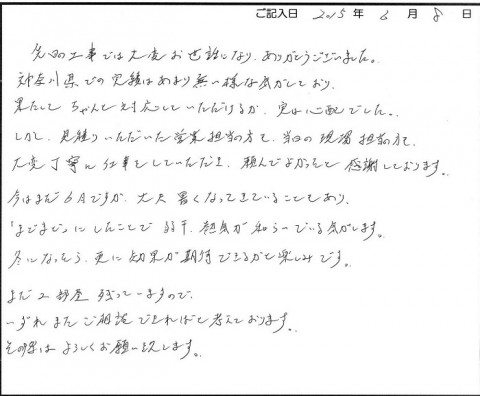 ご記入日 2015年 6月 8日
先日の工事では大変お世話になり、ありがとうございました。
神奈川県での実績はあまり無い様な気がしており、
果たして ちゃんと対応していただけるか、実は心配でした。
しかし、見積りいただいた営業担当の方も、当日の現場担当の方も、
大変丁寧に仕事をしていただき、頼んでよかったと感謝しております。
今はまだ6月ですが、大分暑くなってきていることもあり、
「まどまど」にしたことで 若干、熱気が和らいでいる気がします。
冬になったら、更に効果が期待できるかと楽しみです。
まだ2部屋 残っていますので、
いずれまたご相談できればと考えております。
その際は よろしくお願い致します。